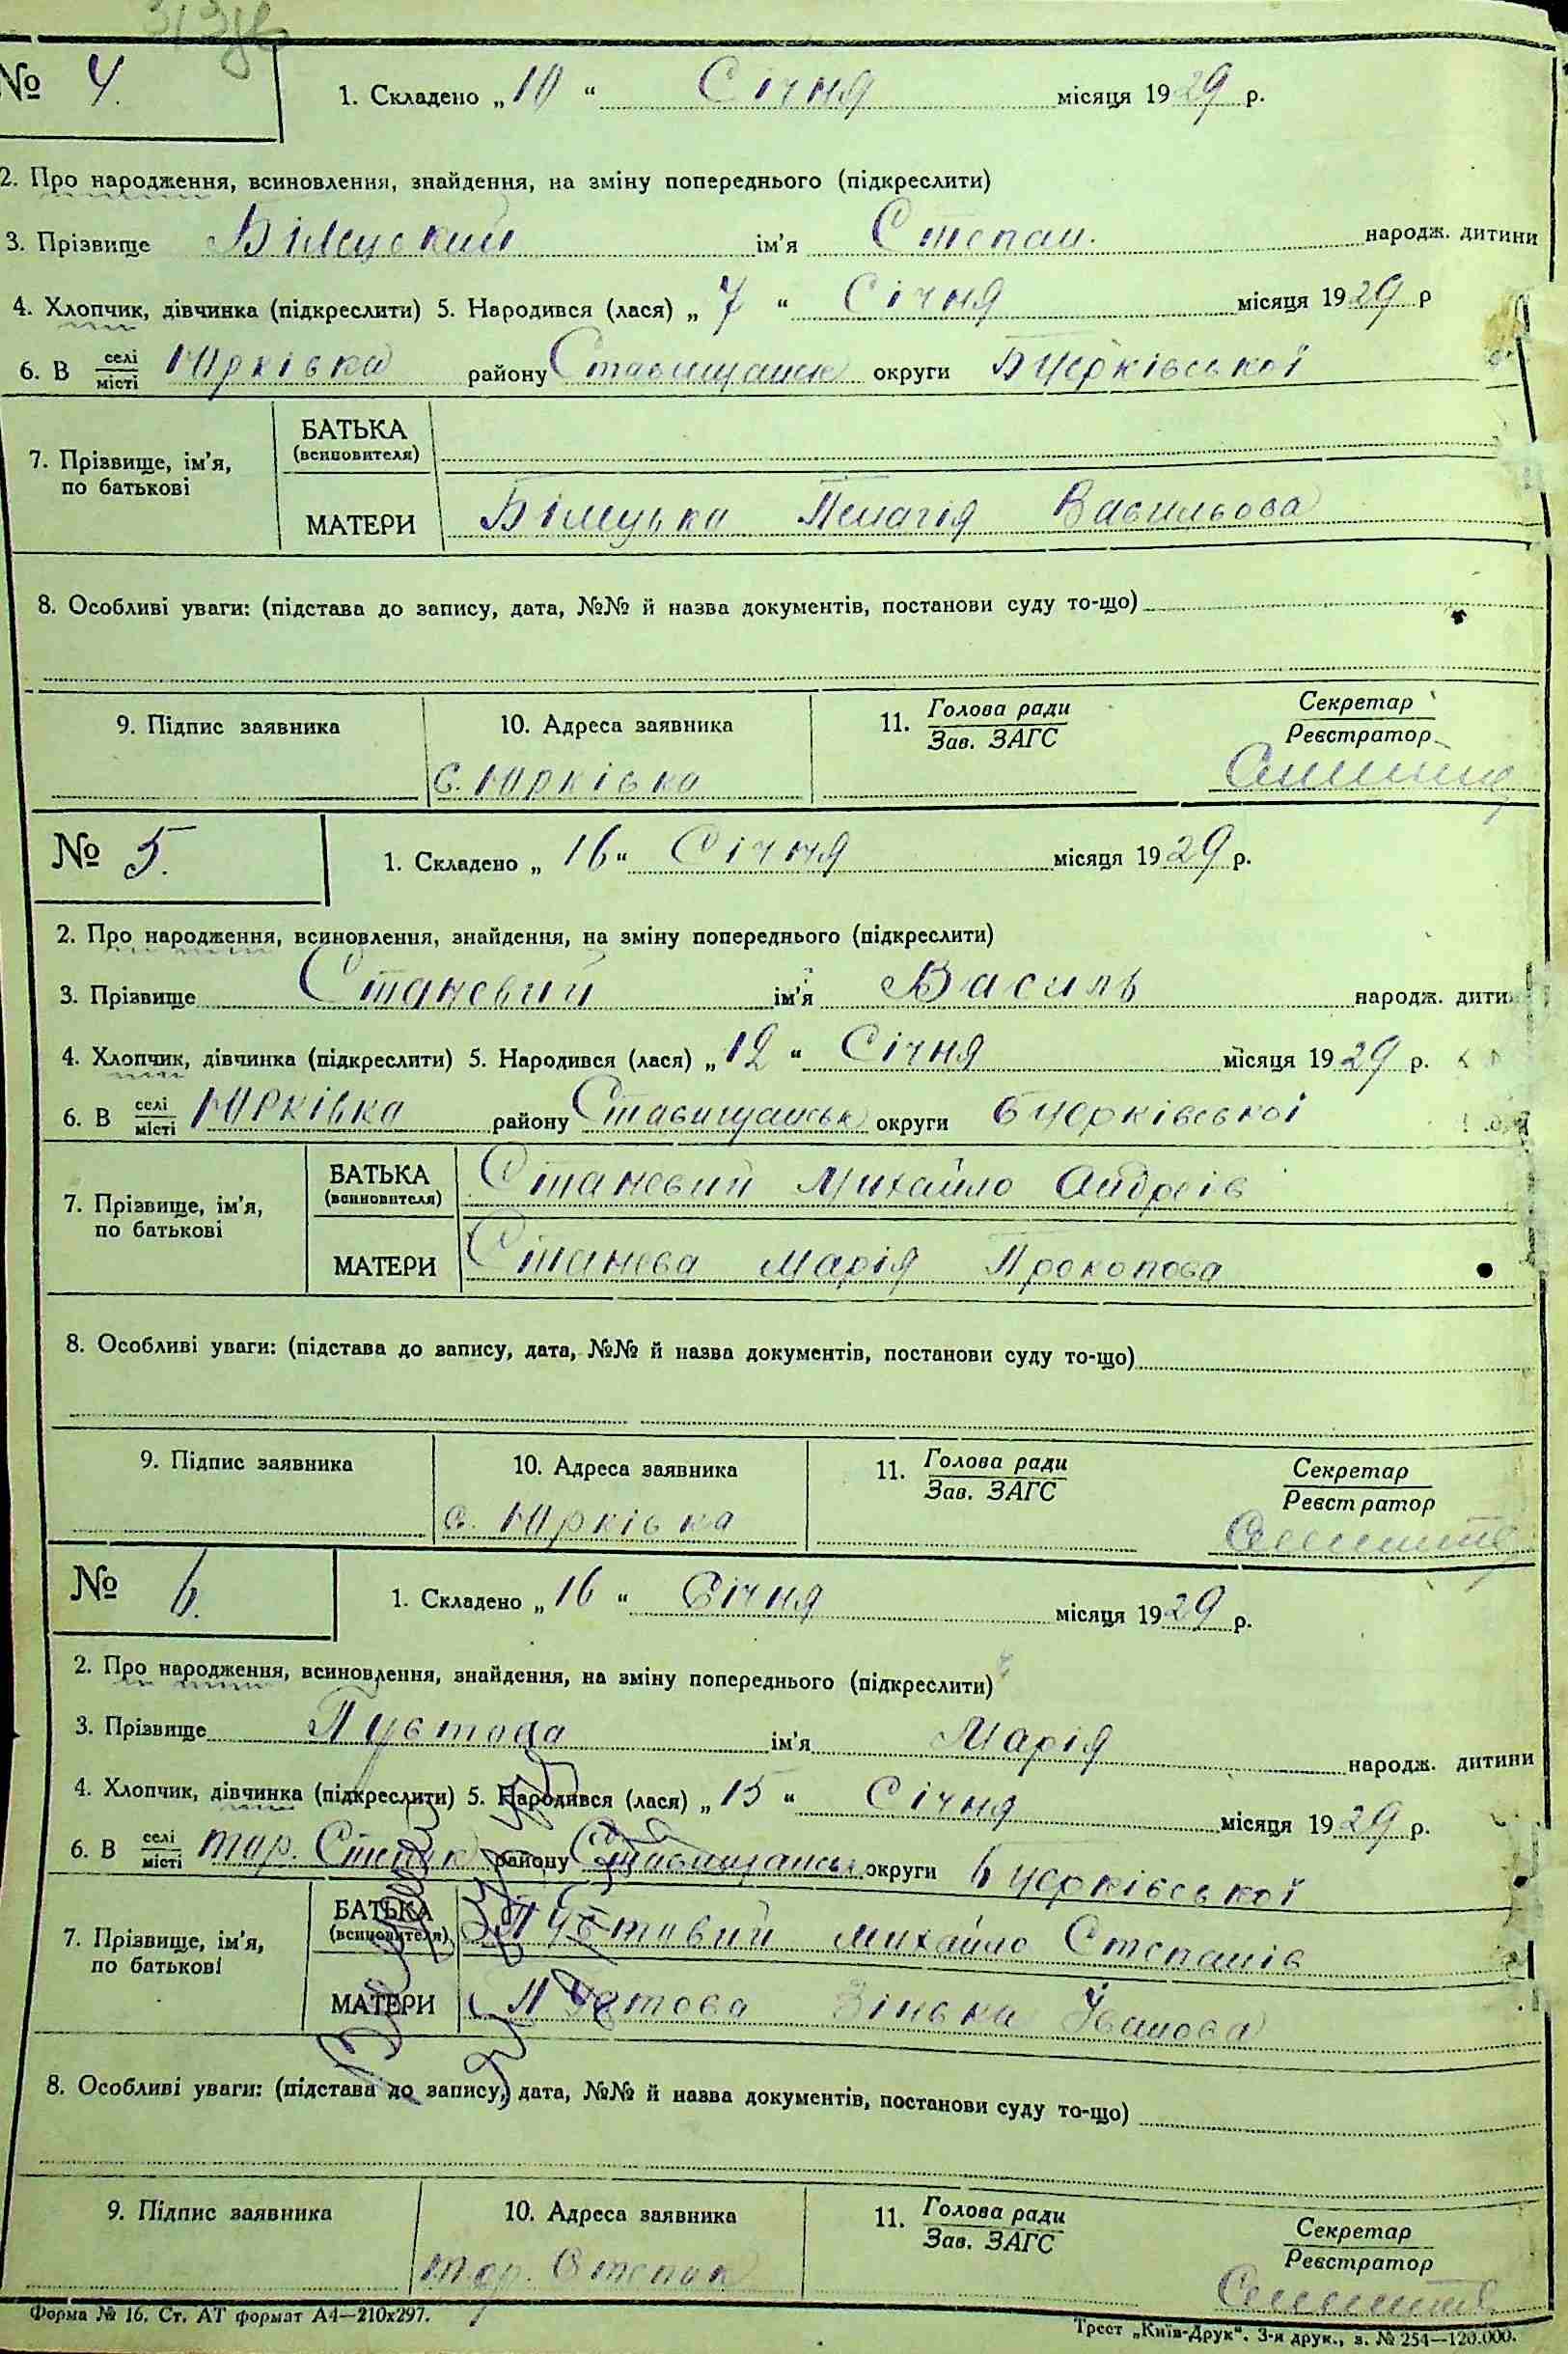 № 4. 1. Складено „10“ Січня місяця 1929 р.
2. Про народження, всиновлення, знайдення, на зміну попереднього (підкреслити)
3. Прізвище Білецький ім'я Степан. народж. дитини
4. Хлопчик, дівчинка (підкреслити) 5. Народився (лася) „7“ Січня місяця 1929 р
6. В селі місті Юрківка району округи Бцерківської
БАТЬКА
(всиновителя)
7. Прізвище, ім'я,
по батькові
МАТЕРИ Білецька Пелагія Васильова
8. Особливі уваги: (підстава до запису, дата, №№ й назва документів, постанови суду то-що)
9. Підпис заявника 10. Адреса заявника 11. Голова ради Зав. ЗАГС Секретар Реєстратор
с. Юрківка
№ 5. 1. Складено „16“ Січня місяця 1929 р.
2. Про народження, всиновлення, знайдення, на зміну попереднього (підкреслити)
3. Прізвище Становий ім'я Василь народж. дити
4. Хлопчик, дівчинка (підкреслити) 5. Народився (лася) „12“ Січня місяця 1929 р.
6. В селі місті Юрківка району Ставищанськ округи бцерківської
БАТЬКА Становий Михайло Андреів
(всиновителя)
7. Прізвище, ім'я,
по батькові
МАТЕРИ Станова Марія Прокопова
8. Особливі уваги: (підстава до запису, дата, №№ й назва документів, постанови суду то-що)
9. Підпис заявника 10. Адреса заявника 11. Голова ради Зав. ЗАГС Секретар Реєстратор
с. Юрківка
№ 6. 1. Складено „16“ Січня місяця 1929 р.
2. Про народження, всиновлення, знайдення, на зміну попереднього (підкреслити)
3. Прізвище Пустова ім'я Марія народж. дитини
4. Хлопчик, дівчинка (підкреслити) 5. Народився (лася) „15“ Січня місяця 1929 р.
6. В селі місті району округи Бцерківської
БАТЬКА Пустовий Михайло Степанів
(всиновителя)
7. Прізвище, ім'я,
по батькові
МАТЕРИ Пустова Зінька Іванова
8. Особливі уваги: (підстава до запису, дата, №№ й назва документів, постанови суду то-що)
9. Підпис заявника 10. Адреса заявника 11. Голова ради Зав. ЗАГС Секретар Реєстратор
Форма № 16. Ст. АТ формат А4—210х297.
Трест „Київ-Друк“. 3-я друк., з. № 254—120.000.